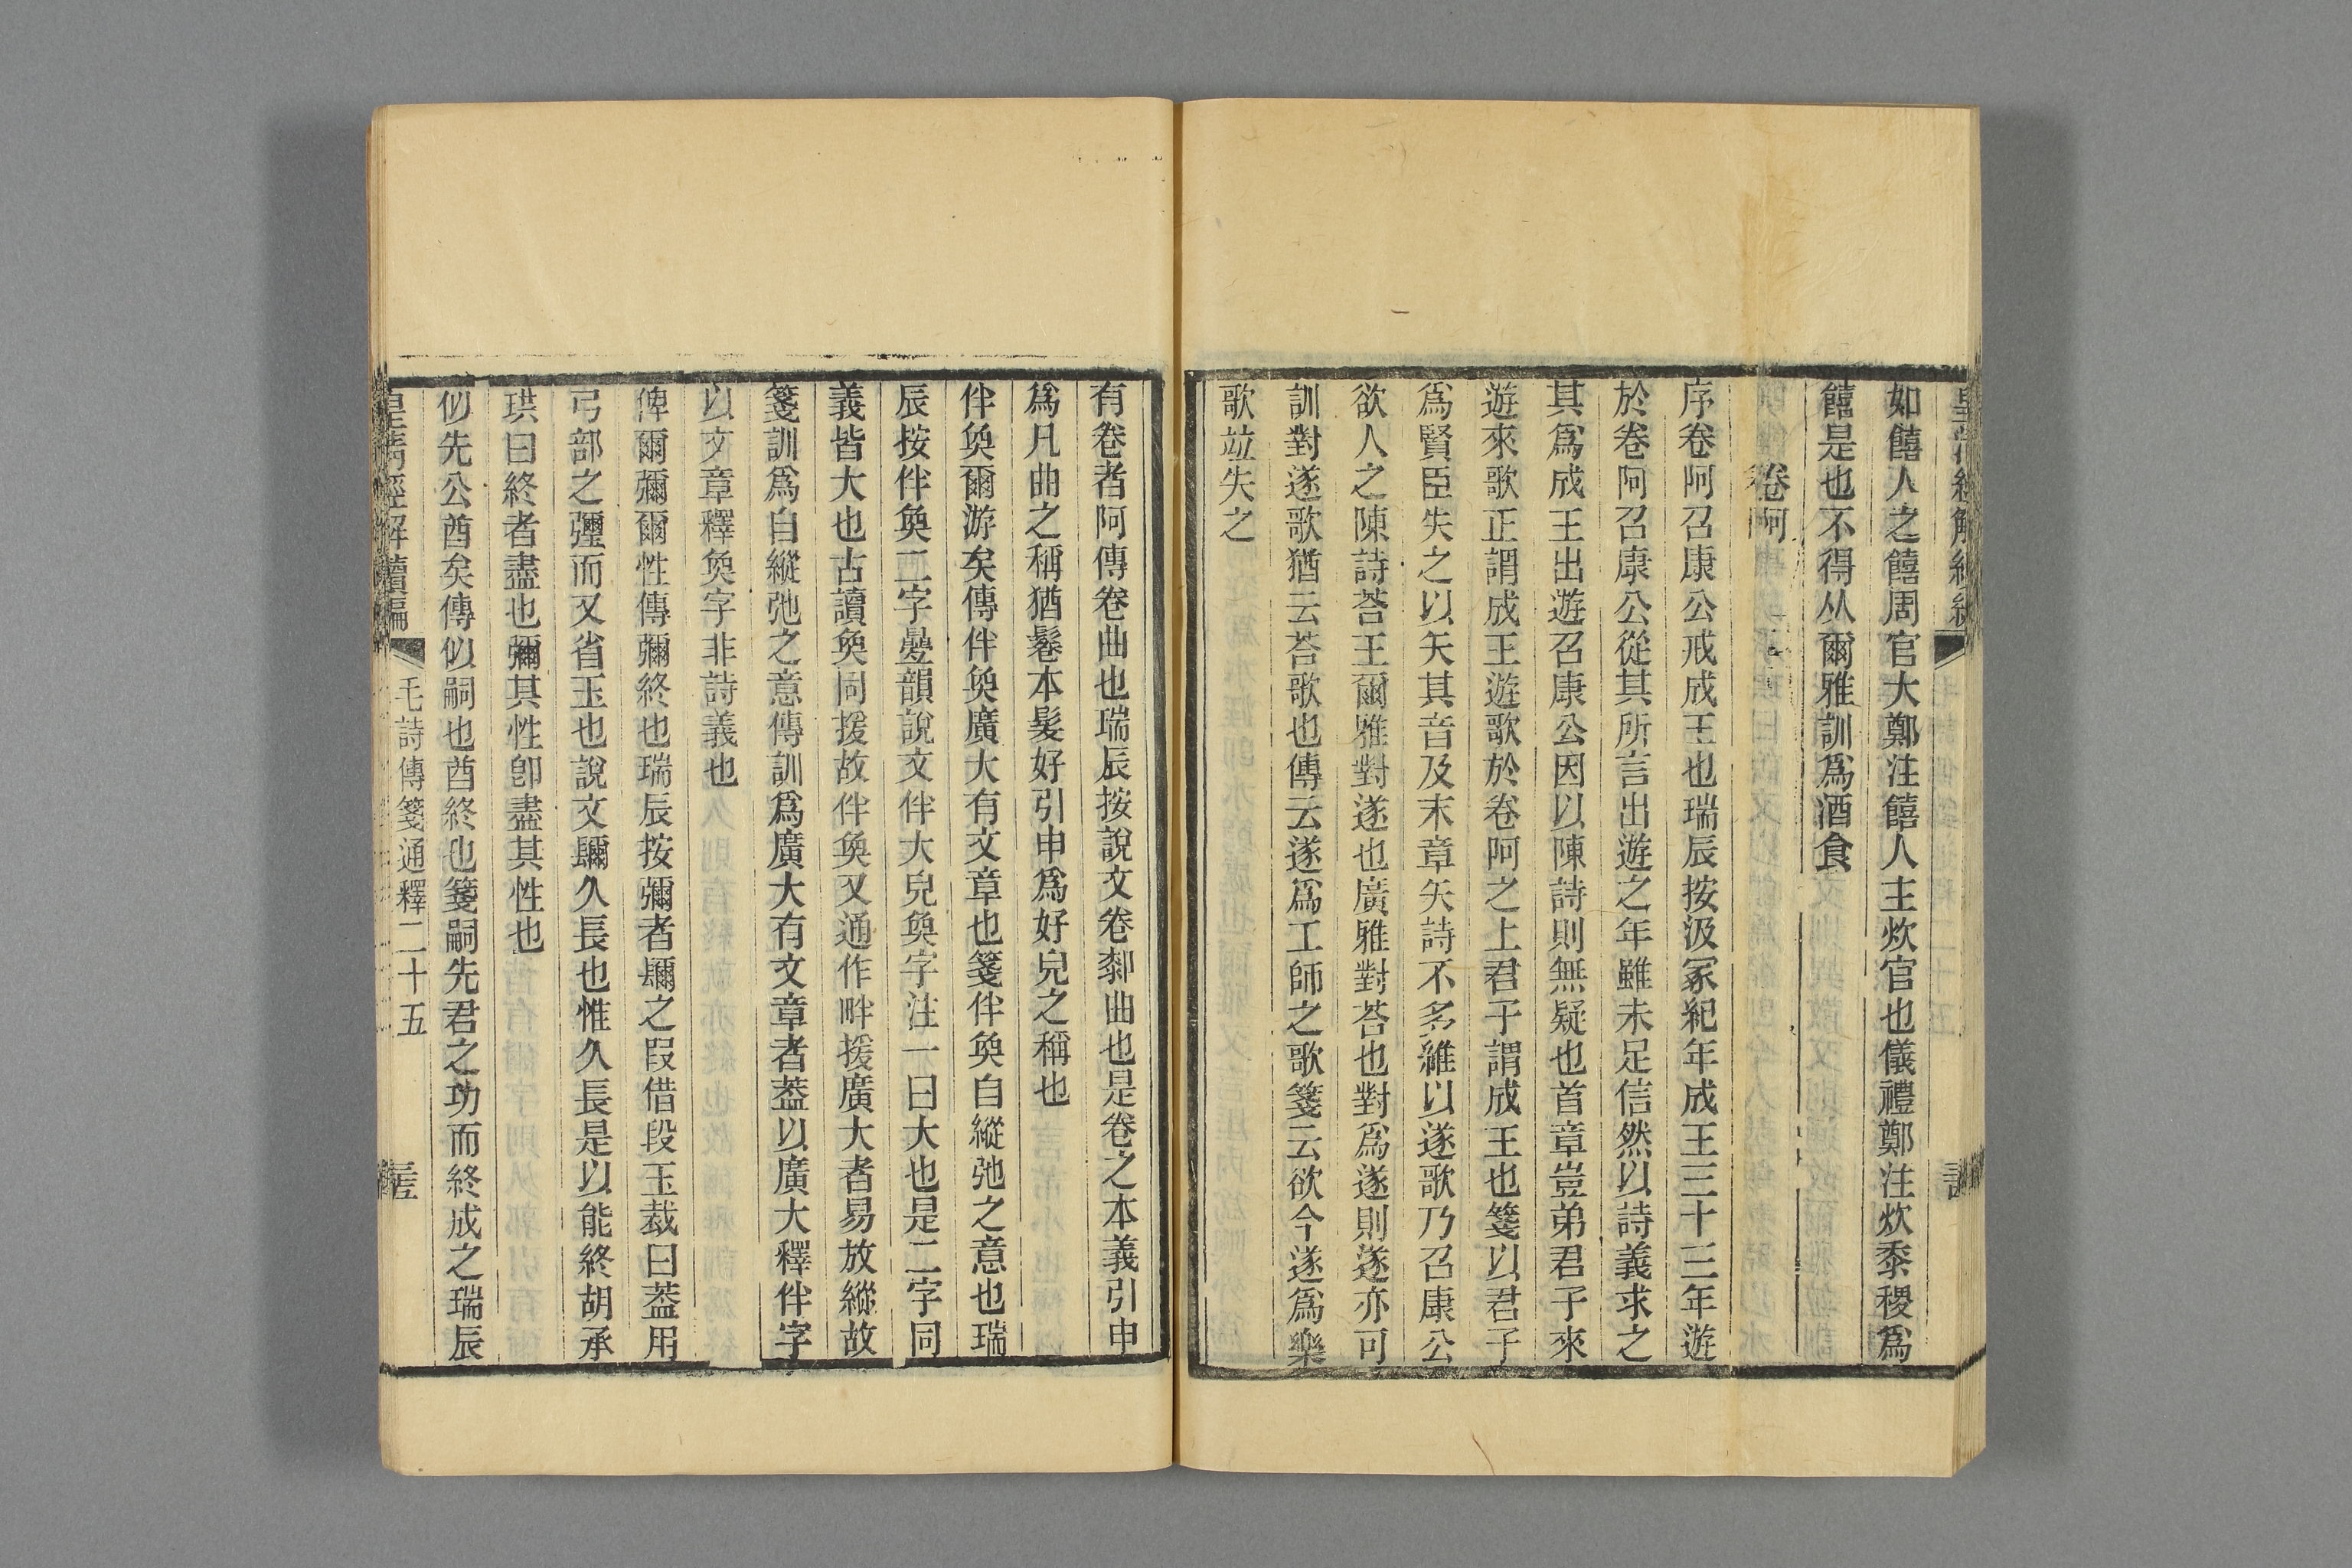 如饎人之饎周官大鄭注饎人主炊官也儀禮鄭注炊黍稷爲
饎是也不得从爾雅訓爲酒食
卷阿
序卷阿召康公戒成王也瑞辰按汲冢紀年成王三十三年遊
於卷阿召康公從其所言出遊之年雖未足信然以詩義求之
其爲成王出遊召康公因以陳詩則無疑也首章豈弟君子來
遊來歌正謂成王遊歌於卷阿之上君子謂成王也箋以君子
爲賢臣失之以矢其音及末章矢詩不多維以遂歌乃召康公
欲人之陳詩荅王爾雅對遂也廣雅對荅也對爲遂則遂亦可
訓對遂歌猶云荅歌也傳云遂爲工師之歌箋云欲今遂爲樂
歌竝失之
有卷者阿傳卷曲也瑞辰按說文卷厀曲也是卷之本義引申
爲凡曲之稱猶鬈本髮好引申爲好皃之稱也
伴奐爾游矣傳伴奐廣大有文章也箋伴奐自縱弛之意也瑞
辰按伴奐二字疊韻說文伴大皃奐字注一曰大也是二字同
義皆大也古讀奐同援故伴奐又通作畔援廣大者易放縱故
箋訓爲自縱弛之意傳訓爲廣大有文章者葢以廣大釋伴字
以文章釋奐字非詩義也
俾爾彌爾性傳彌終也瑞辰按彌者镾之叚借段玉裁曰葢用
弓部之彏而又省玉也說文镾久長也惟久長是以能終胡承
珙曰終者盡也彌其性卽盡其性也
似先公酋矣傳似嗣也酋終也箋嗣先君之功而終成之瑞辰
皇清經解續編
毛詩傳箋通釋二十五